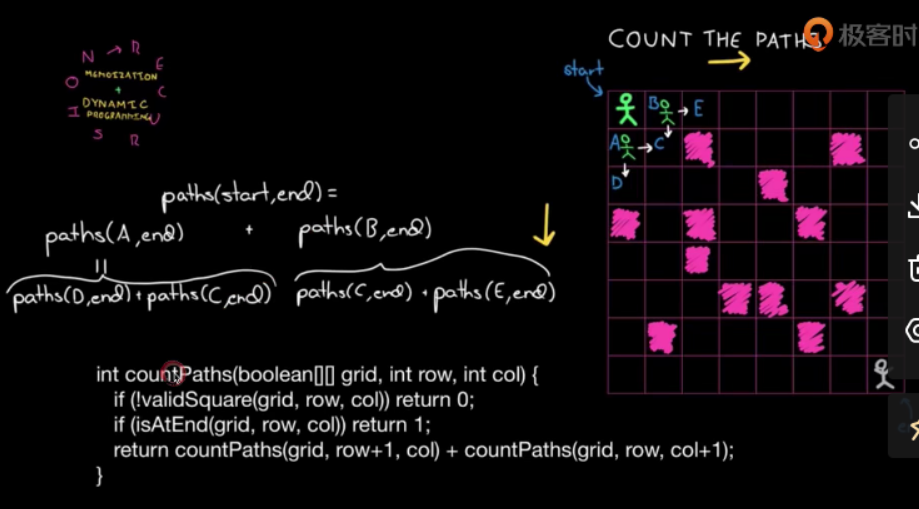 极客时
COUNT THE PATHS
start
N → R
E
C
U
R
S
I
O
MEMOIZATION
+
DYNAMIC
PROGRAMMING
B → E
A → C
D
paths(start,end) =
paths(A,end) + paths(B,end)
paths(D,end) + paths(C,end) paths(C,end) + paths(E,end)
int countPaths(boolean[][] grid, int row, int col) {
if (!validSquare(grid, row, col)) return 0;
if (isAtEnd(grid, row, col)) return 1;
return countPaths(grid, row+1, col) + countPaths(grid, row, col+1);
}